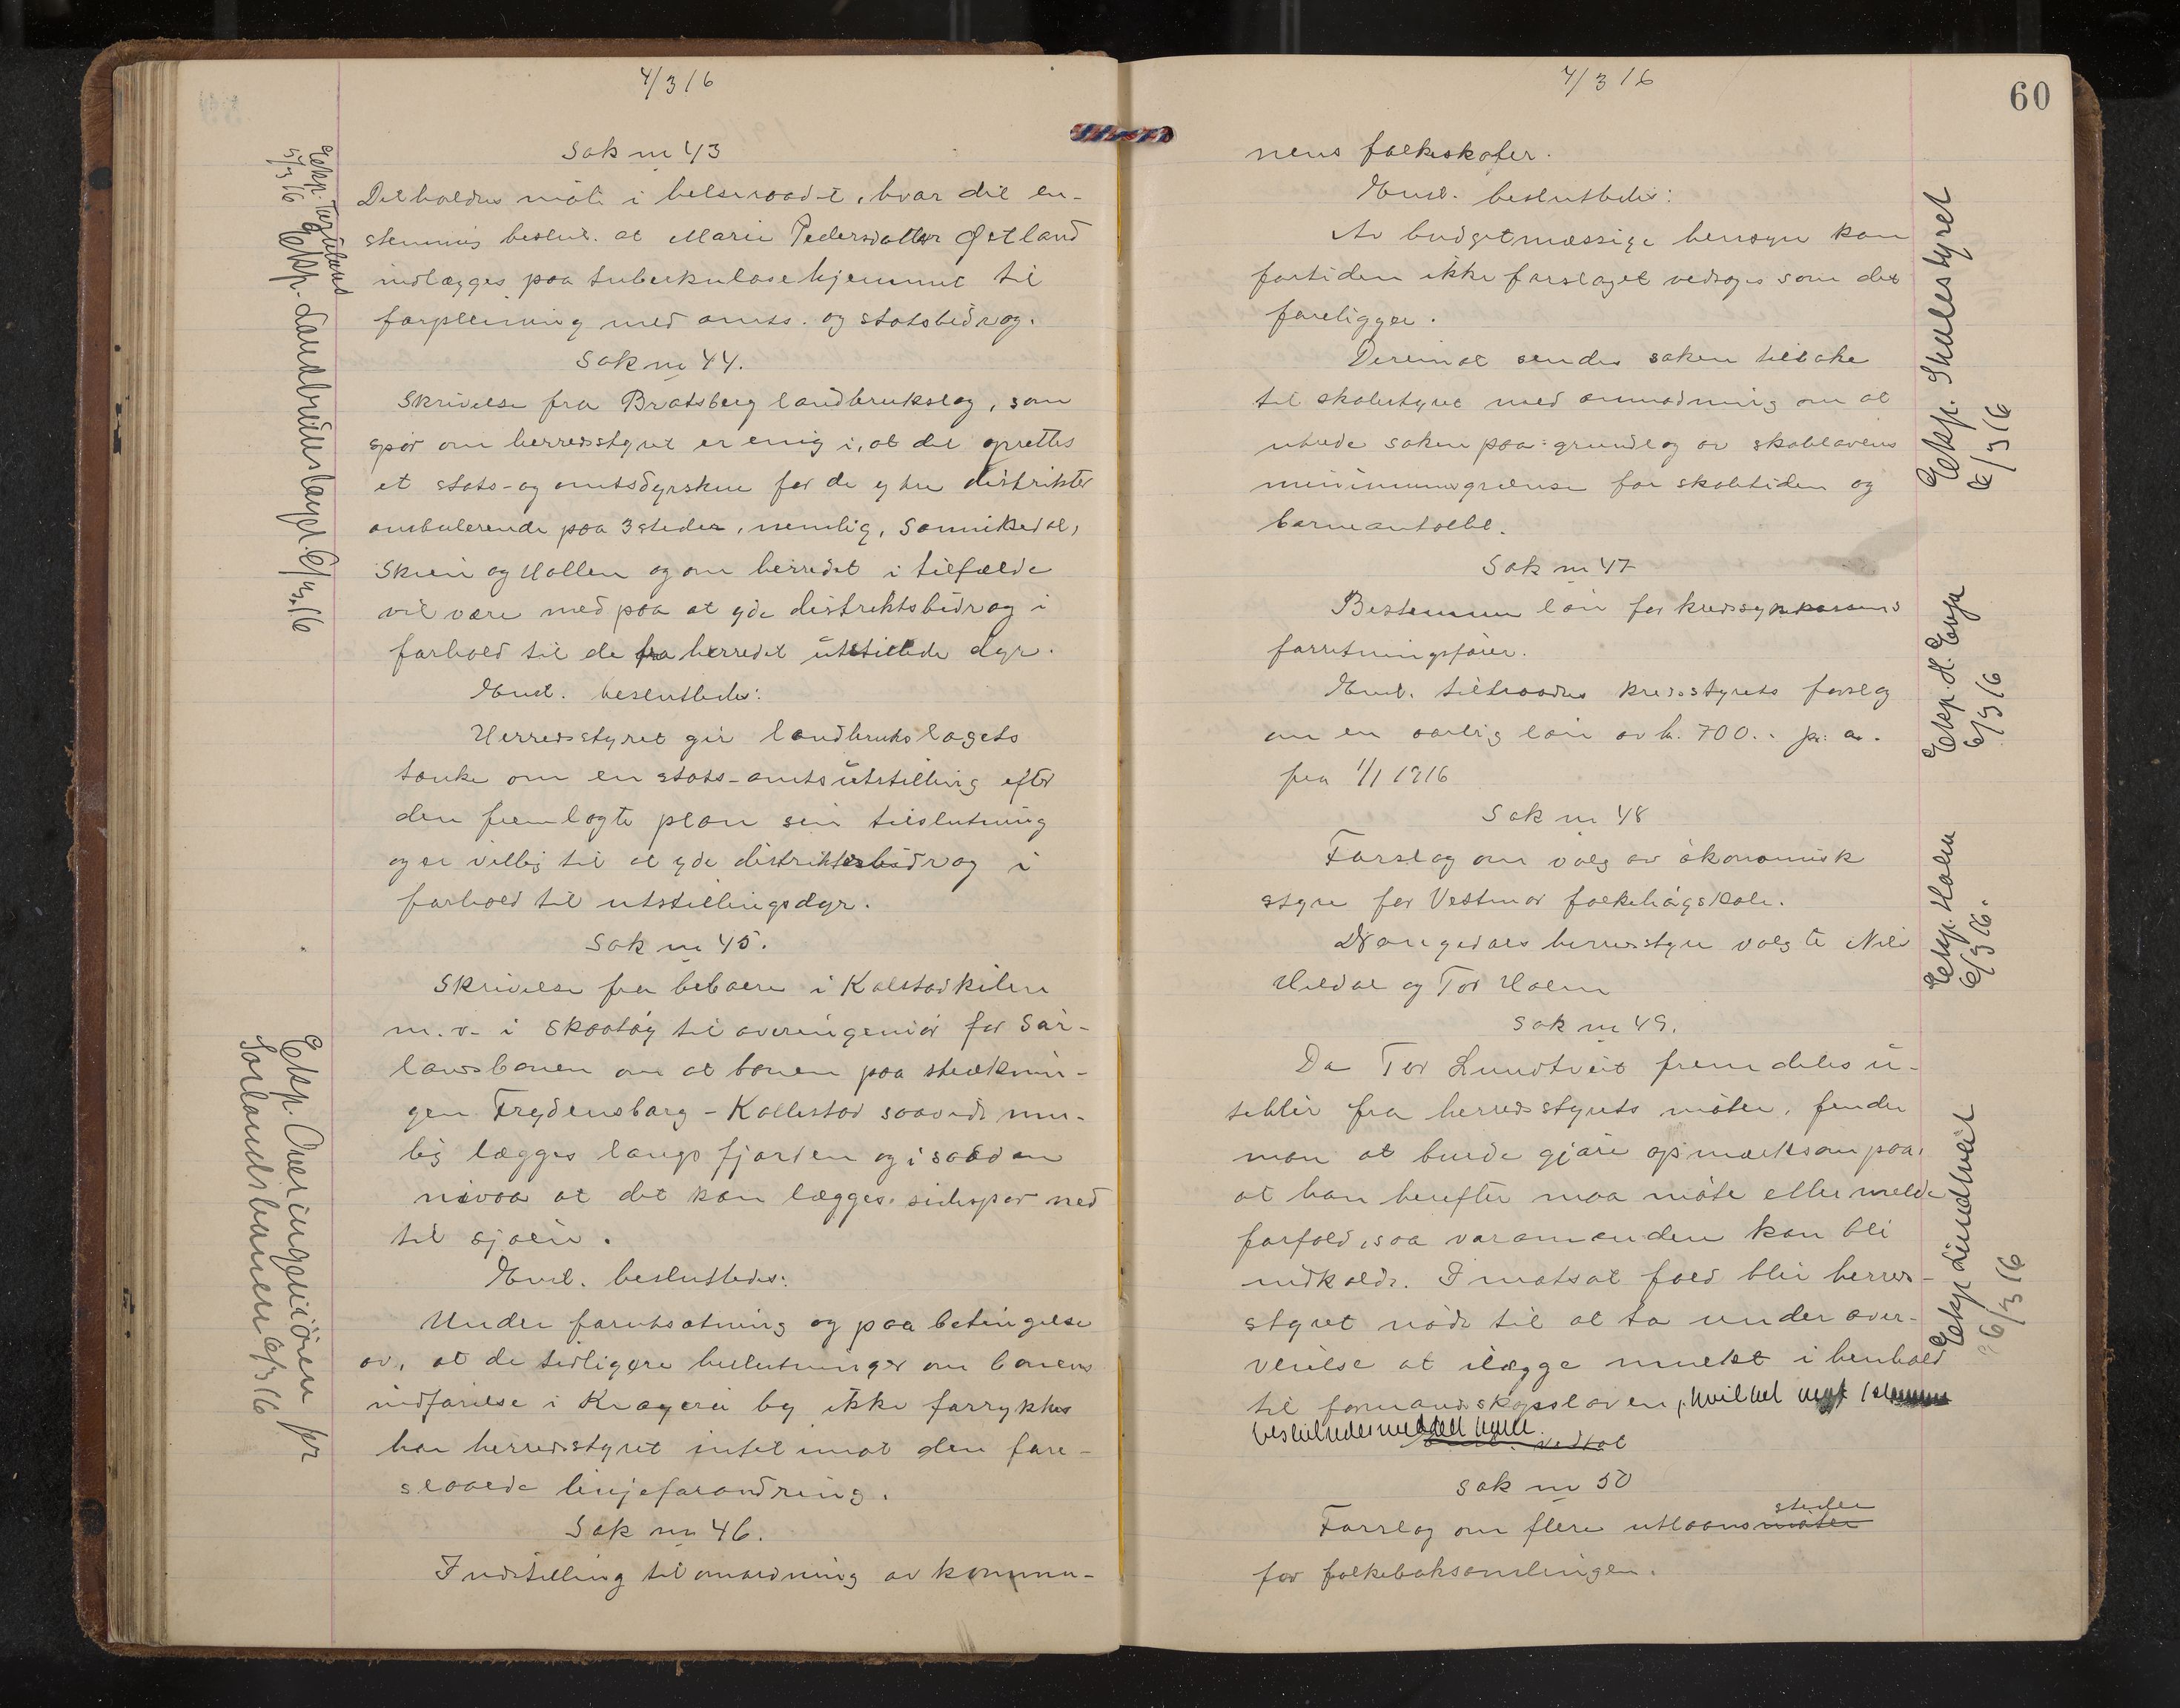 4/3 16
Sak nr 43
Det holdtes møte i helseraadet, hvor det en-
stemmig beslut. at Marie Pedersdatter Øtland
indlægges paa tuberkulosehjemmet til
forpleining med amts- og statsbidrag.
Sak nr 44.
Skrivelse fra Bratsberg landbrukslag, som
spør om herredsstyret er enig i, at det oprettes
et stats- og amtsdyrskue for de ytre distrikter
ambulerende paa 3 steder, nemlig, Sannikedal,
Skien og Hollen og om herredet i tilfælde
vil være med paa at yde distriktsbidrag i
forhold til de fra herredet utstillede dyr.
Enst. besluttedes:
Herredsstyret gir landbrukslagets
tanke om en stats-amtsutstilling efter
den fremlagte plan sin tilslutning
og er villig til at yde distriktsbidrag i
forhold til utstillingsdyr.
Sak nr 45.
Skrivelse fra beboere i Kalstadkilen
m. v. i Skaatøy til overingeniør for Sør-
landsbanen om at banen paa stræknin-
gen Frydensborg - Kallestad saavidt mu-
lig lægges langs fjorden og i saadan
nivaa at det kan lægges sidespor ned
til sjøen.
Enst. besluttedes:
Under forutsætning og paa betingelse
av, at de tidligere beslutninger om banens
indførelse i Kragerø by ikke forryktes
har herredsstyret intet imot den fore-
slaaede linjeforandring.
Sak nr 46.
Indstilling til omordning av kommu-
Eksp. Landbrukslaget 6/3.16
Eksp. Overingeniøren for
Sørlandsbanen 6/3 16
4/3 16
60
nens folkeskoler.
Enst. besluttedes:
Av budgetmæssige hensyn kan
fortiden ikke forslaget vedtages som det
foreligger.
Derimot sendes saken tilbake
til skolestyret med anmodning om at
utrede saken paa grundlag av skolelovens
minimumsgrænse for skoletiden og
barneantallet.
Sak nr 47
Bestemme løn for kredssykekassens
forretningsfører.
Enst. tiltraadtes kredsstyrets forslag
om en aarlig løn av kr. 700.- pr. a.
fra 1/1 1916
Sak nr 48
Forslag om valg av økonomisk
styre for Vestmar folkehøgskole.
Drangedals herredsstyre valgte Nils
Heldal og Tor Holm
Sak nr 49.
Da Tor Lundtveit fremdeles u-
teblir fra herredsstyrets møter, finder
man at burde gjøre opmerksom paa,
at han herefter maa møte eller melde
forfald, saa varamanden kan bli
indkaldt. I motsat fald blir herreds-
styret nødt til at ta under over-
veielse at ilægge mulkt i henhold
til formandskapsloven, hvilket
Enst. vedtat
Sak nr 50
steder
Forslag om flere utlaansmøter
for folkeboksamlingen.
Eksp. Skulestyret
6/3 16
Eksp. H.
6/3 16
Eksp. Holm
6/3 16.
Eksp Lundtveit
6/3 16